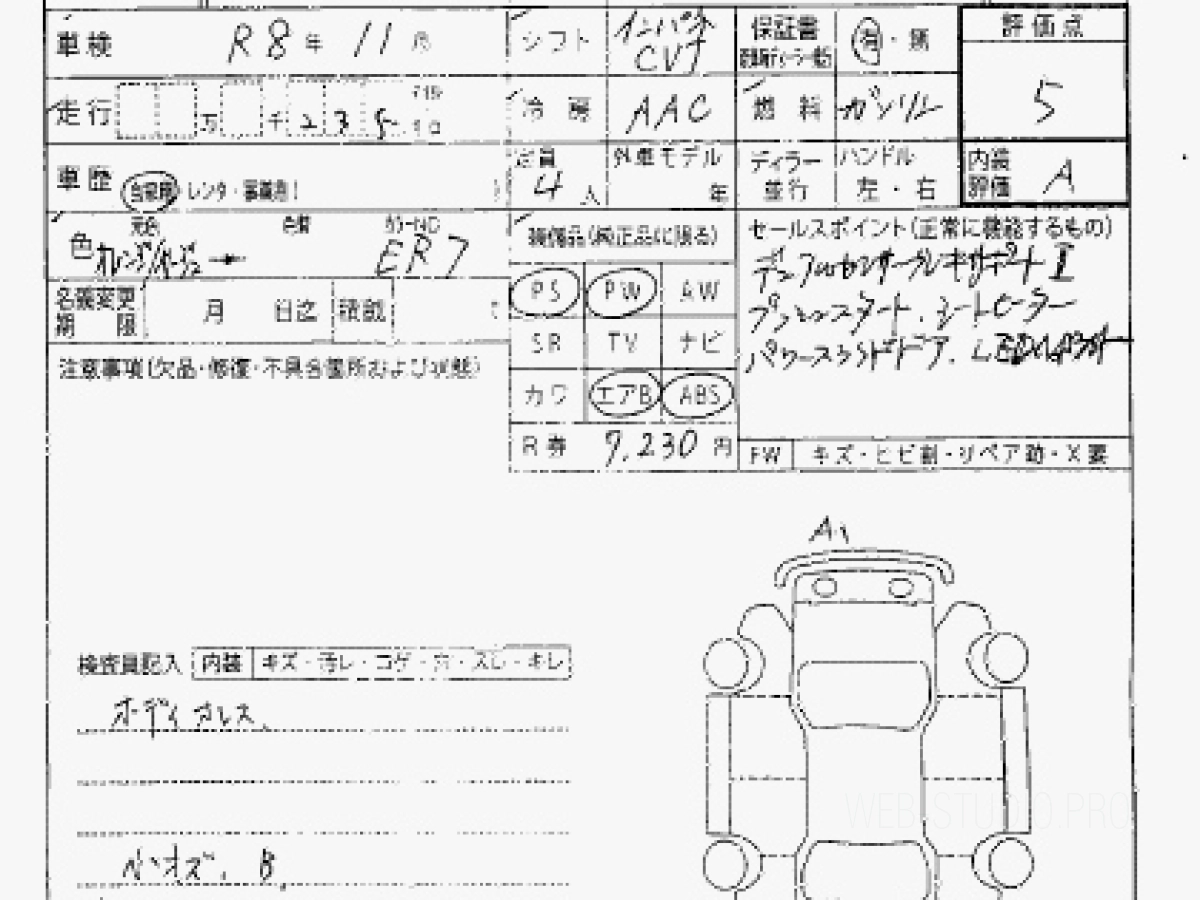 車検 R8年 11月 シフト インパネ CVT 保証書 有・無 評価点
走行 万 千 2 3 5 冷房 AAC 燃料 ガソリン 5
車歴 自家用 レンタ・事業息( ) 定員 4人 外車モデル 年 ディラー 並行 ハンドル 左・右 内装評価 A
色 元色 オレンジ/ 色替 カラーNO ER7
装備品(純正品に限る)
セールスポイント(正常に機能するもの)
デュアルセンサーブレーキサポートⅡ
プッシュスタート、シートヒーター
パワースライドドア、LED
名義変更期限 月 日迄 積載 t
PS PW AW
SR TV ナビ
カワ エアB ABS
R券 9,230円
注意事項(欠品・修復・不具合箇所および状態)
FW キズ・ヒビ割・リペア跡・X要
A1
検査員記入 内装 キズ・汚レ・コゲ・穴・スレ・キレ
B
WEB-STUDIO.PRO